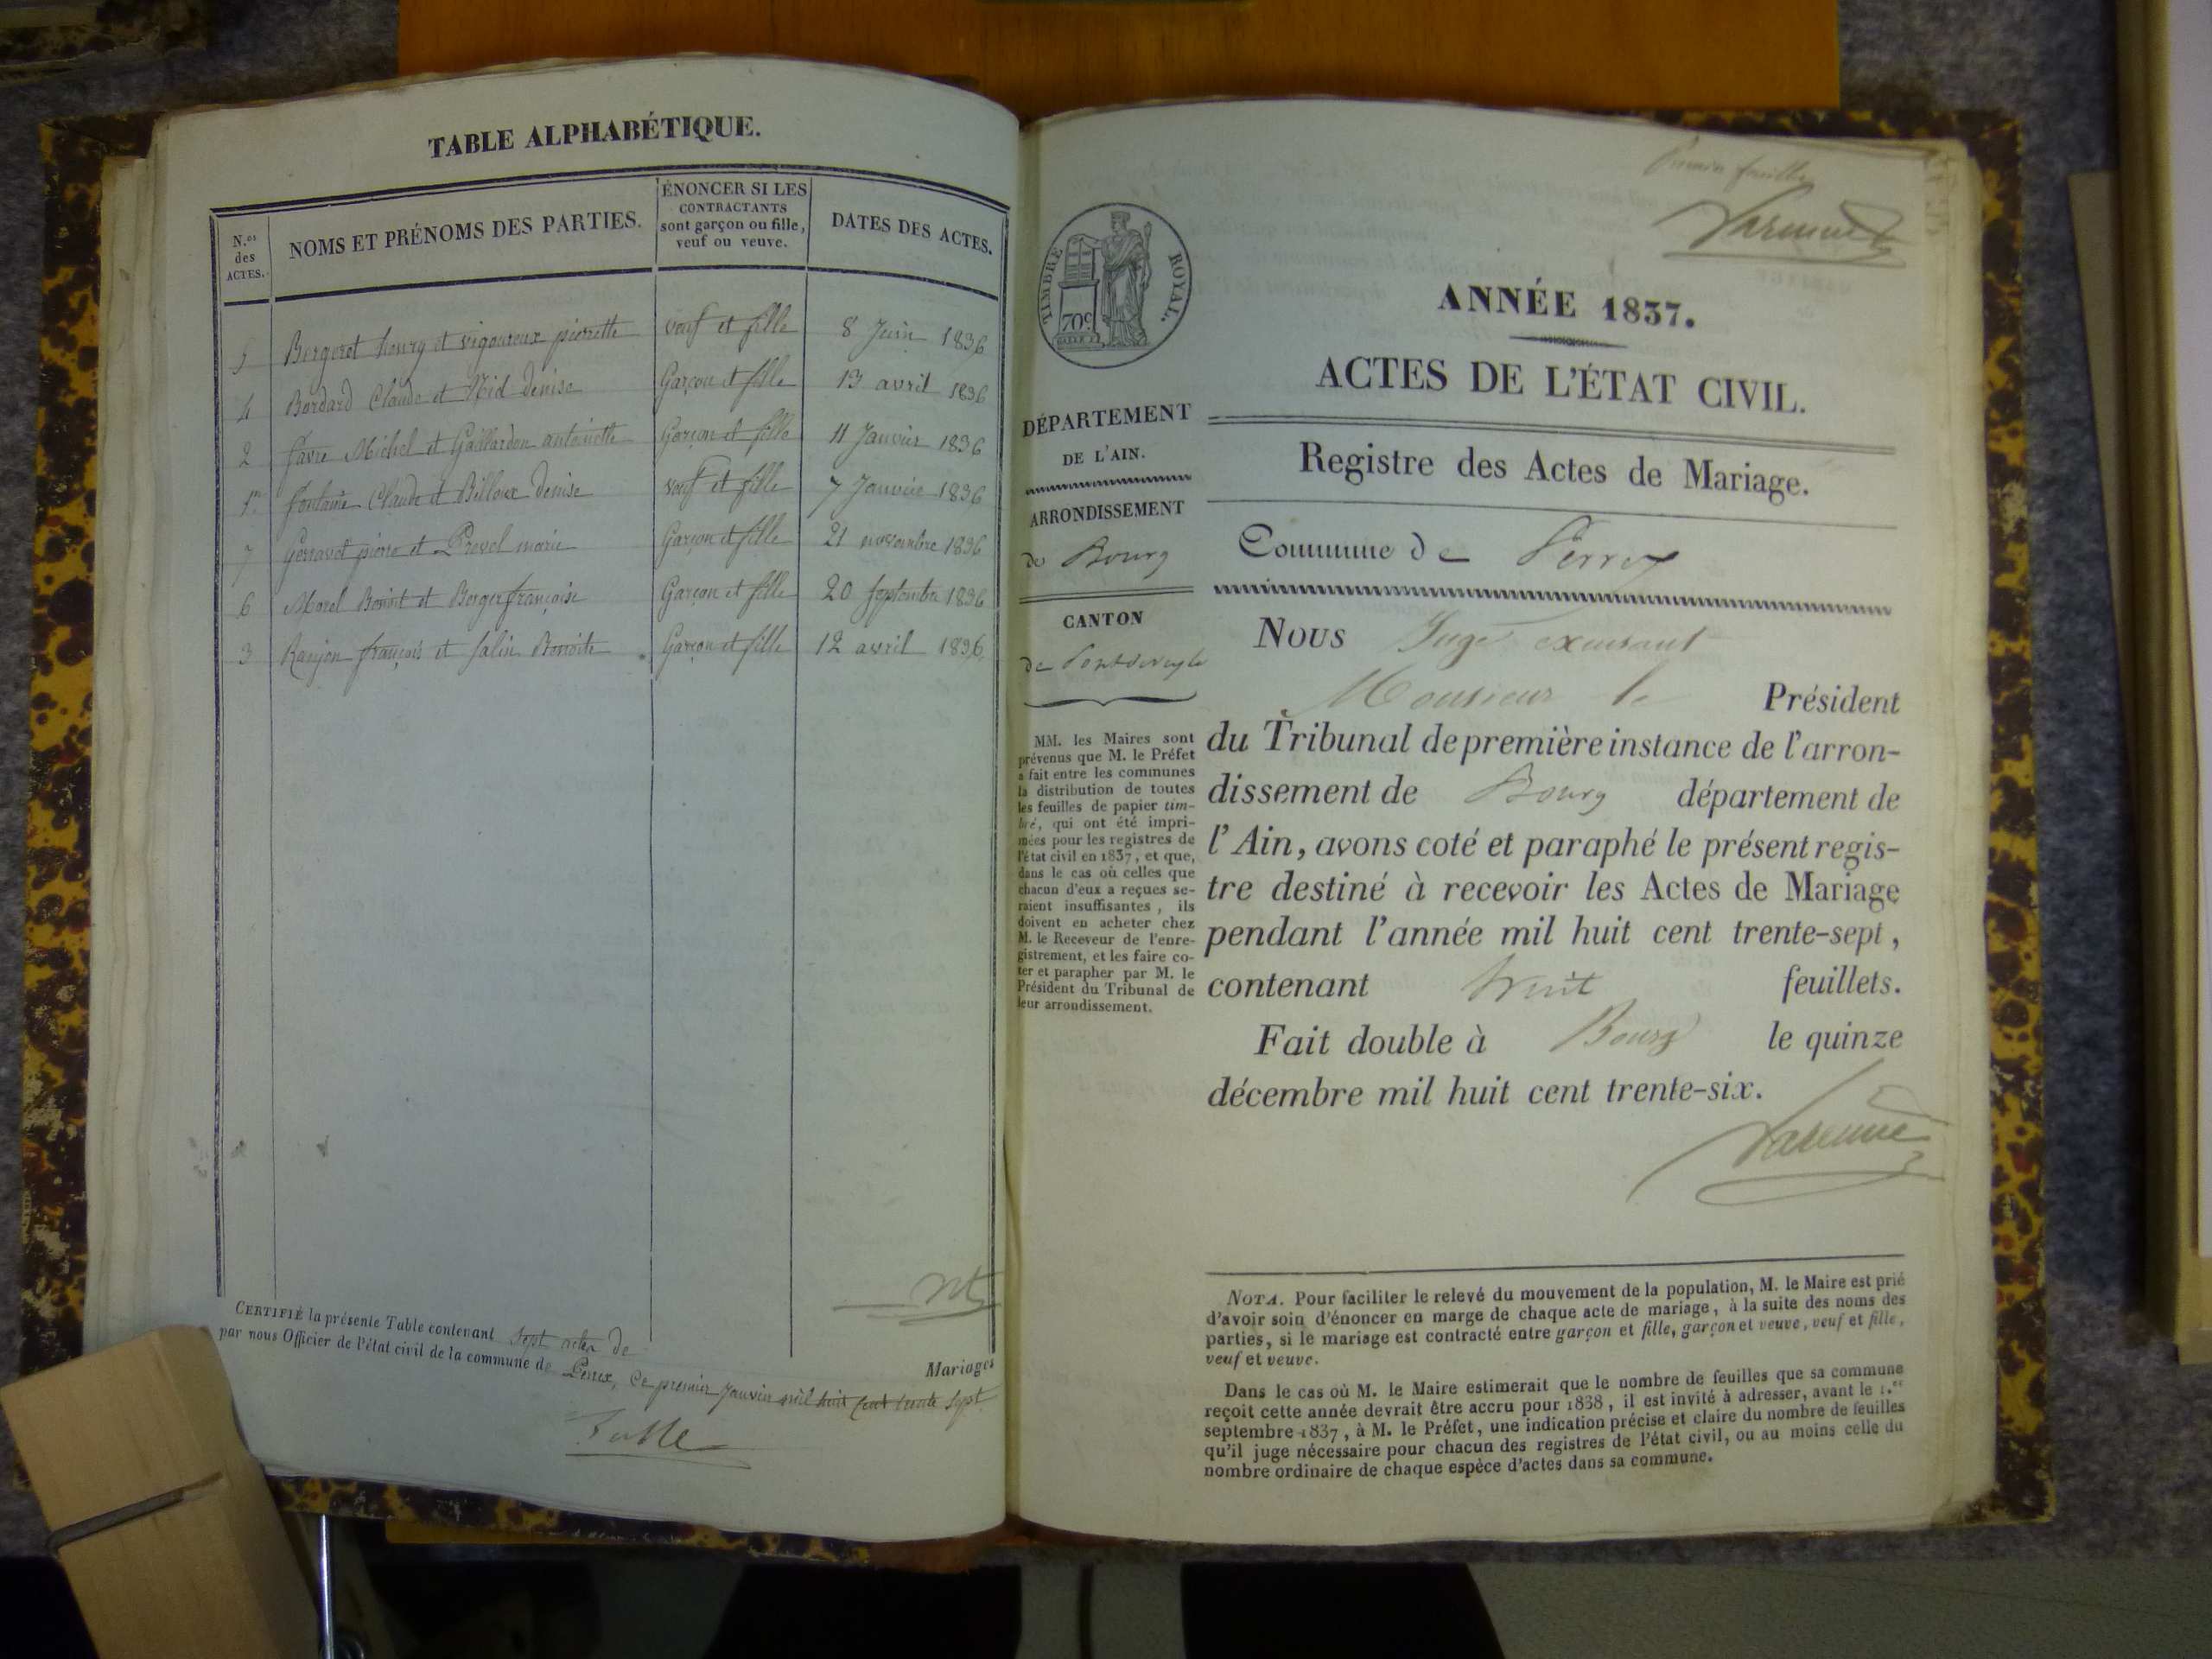 TABLE ALPHABÉTIQUE.
N.os des ACTES.
NOMS ET PRÉNOMS DES PARTIES.
ÉNONCER SI LES CONTRACTANTS sont garçon ou fille, veuf ou veuve.
DATES DES ACTES.
5 Bergerot henry et vigoureux pierrette veuf et fille 8 Juin 1836
4 Bordard Claude et Nid denise Garçon et fille 13 avril 1836
2 favre Michel et Gaillardon antoinette Garçon et fille 11 Janvier 1836
1er fontaine Claude et Billoux denise veuf et fille 7 Janvier 1836
7 pierre et marie Garçon et fille 21 novembre 1836
6 Morel Benoit et Berger françoise Garçon et fille 20 septembre 1836
3 Ranjon françois et Salin Benoite Garçon et fille 12 avril 1836
CERTIFIÉ la présente Table contenant sept actes de Mariages
par nous Officier de l'état civil de la commune de Perrex, ce premier Janvier mil huit cent trente sept
Premier feuillet
Varenne
TIMBRE ROYAL.
70c
ANNÉE 1837.
ACTES DE L'ÉTAT CIVIL.
Registre des Actes de Mariage.
DÉPARTEMENT
DE L'AIN.
ARRONDISSEMENT
de Bourg
CANTON
de Pontdeveyle
MM. les Maires sont
prévenus que M. le Préfet
a fait entre les communes
la distribution de toutes
les feuilles de papier tim-
bré, qui ont été impri-
mées pour les registres de
l'état civil en 1837, et que,
dans le cas où celles que
chacun d'eux a reçues se-
raient insuffisantes, ils
doivent en acheter chez
M. le Receveur de l'enre-
gistrement, et les faire co-
ter et parapher par M. le
Président du Tribunal de
leur arrondissement.
Commune de Perrex
NOUS Juge exerçant
Monsieur le Président
du Tribunal de première instance de l'arron-
dissement de Bourg département de
l'Ain, avons coté et paraphé le présent regis-
tre destiné à recevoir les Actes de Mariage
pendant l'année mil huit cent trente-sept,
contenant huit feuillets.
Fait double à Bourg le quinze
décembre mil huit cent trente-six.
Varenne
NOTA. Pour faciliter le relevé du mouvement de la population, M. le Maire est prié
d'avoir soin d'énoncer en marge de chaque acte de mariage, à la suite des noms des
parties, si le mariage est contracté entre garçon et fille, garçon et veuve, veuf et fille,
veuf et veuve.
Dans le cas où M. le Maire estimerait que le nombre de feuilles que sa commune
reçoit cette année devrait être accru pour 1838, il est invité à adresser, avant le 1.er
septembre 1837, à M. le Préfet, une indication précise et claire du nombre de feuilles
qu'il juge nécessaire pour chacun des registres de l'état civil, ou au moins celle du
nombre ordinaire de chaque espèce d'actes dans sa commune.